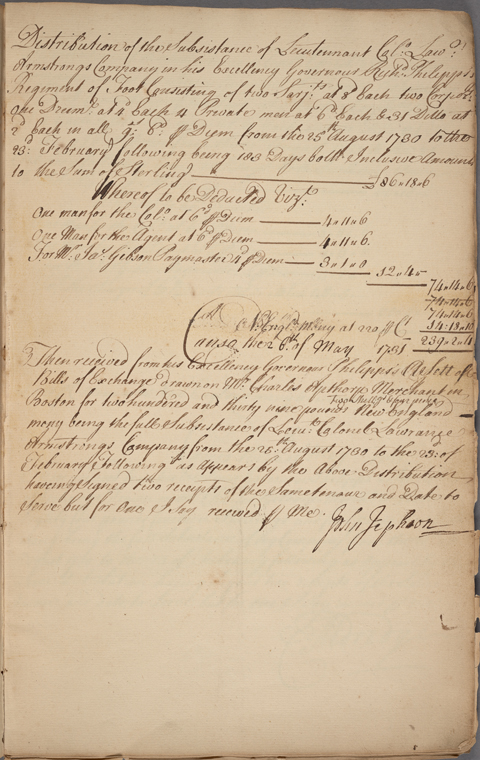 Distribution of the Subsistance of Lieutennant Colo. Lawo.
Armstrongs Company in his Excellency Governour Richd. Philipps's
Regiment of Foot Consisting of two Serjts. at 8d Each two
one Drumr. at 4d Each 4 Private men at 6d Each & 31 Ditto at
2d Each in all 9s: 6d. ⅌ Diem from the 25th August 1730 to the
23d. February following being 183 Days both Inclusive Amounts
to the Sum of Sterling £86 " 18 " 6
Whereof to be Deducted Vizt.
One man for the Colo. at 6d ⅌ Diem 4 " 11 " 6
One Man for the Agent at 6d ⅌ Diem 4 " 11 " 6
For Mr. Jas. Gibson Paymaster 4d ⅌ Diem 3 " 1 " 0
12 " 4 "
74 " 14 " 6
74 " 14 " 6
74 " 14 " 6
N: Engld. Mony at 220 ⅌ Ct. 14 " 18 " 10
Canso the 6th. of May 1731 239 " 2 " 4
Then received from his Excellency Governour Philipps's A Sett of
Bills of Exchange drawn on Mr. Charles Apthorp Merchant in
Boston for two hundred and thirty nine pounds
two Shills. & four pence
New England
mony being the full Subsistance of Lieut. Colonel Lawrance
Armstrongs Company from the 25th. August 1730 to the 23d. of
February Following as appears by the Above Distribution
having signed two receipts of the same tenour and Date to
Serve but for One I Say received ⅌ Me.
John Jephson